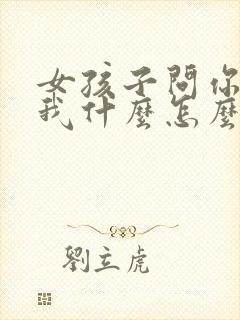 女孩子問你
我什麼怎麼
劉立虎